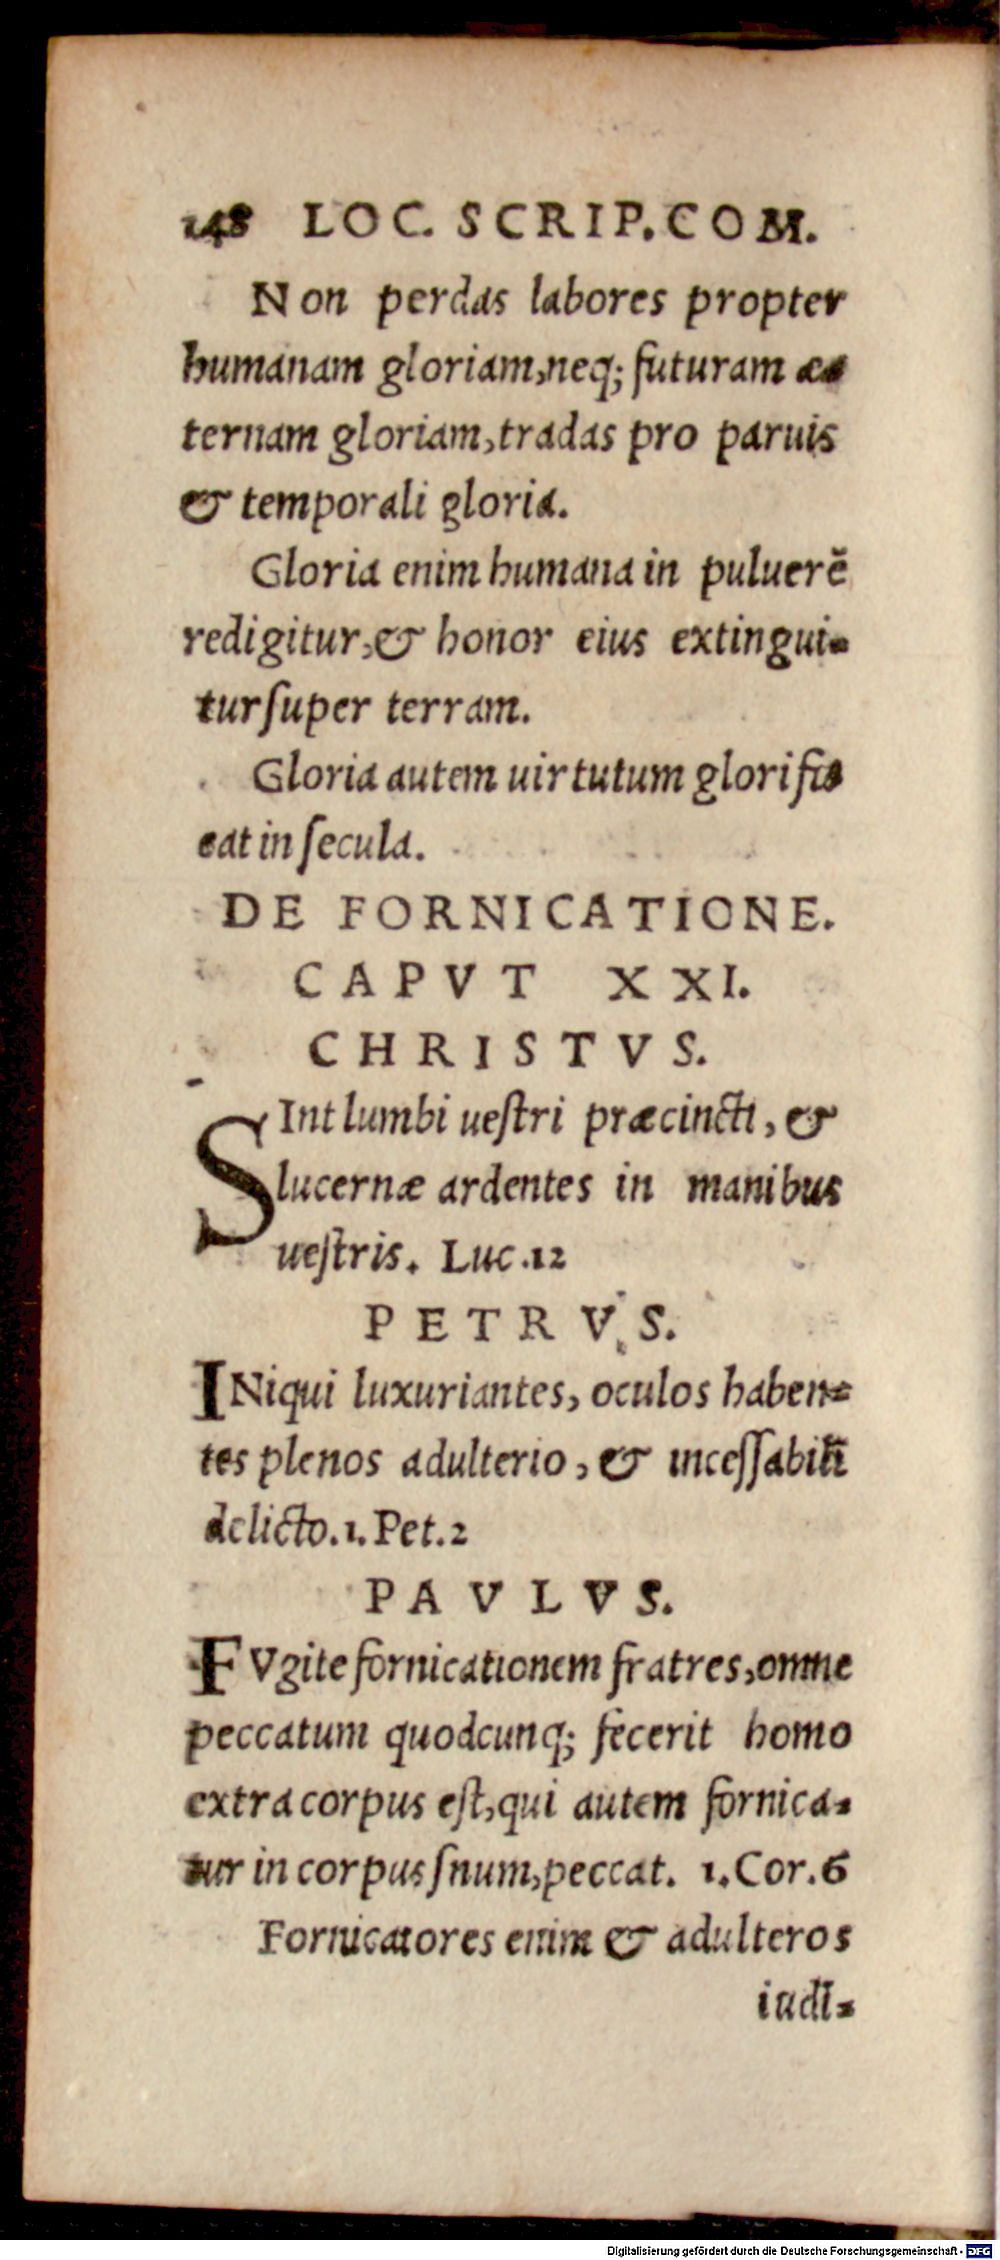 148 LOC. SCRIP. COM.
Non perdas labores propter
humanam gloriam, neq; futuram æ-
ternam gloriam, tradas pro paruis
& temporali gloria.
Gloria enim humana in puluerē
redigitur, & honor eius extingui-
tur ſuper terram.
Gloria autem uirtutum glorifi-
cat in ſecula.
DE FORNICATIONE.
CAPVT XXI.
CHRISTVS.
SInt lumbi ueſtri præcincti, &
lucernæ ardentes in manibus
ueſtris. Luc. 12
PETRVS.
INiqui luxuriantes, oculos haben-
tes plenos adulterio, & inceſſabili
delicto. 1. Pet. 2
PAVLVS.
FVgite fornicationem fratres, omne
peccatum quodcunq; fecerit homo
extra corpus eſt, qui autem fornica-
tur in corpus ſnum, peccat. 1. Cor. 6
Fornicatores enim & adulteros
iudi-
Digitalisierung gefördert durch die Deutsche Forschungsgemeinschaft - DFG